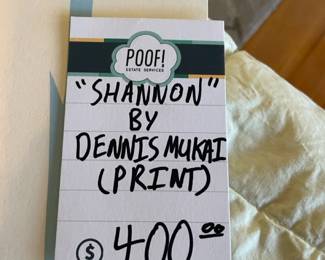 POOF!
ESTATE SERVICES
"SHANNON"
BY
DENNIS MUKAI
(PRINT)
$ 400.00